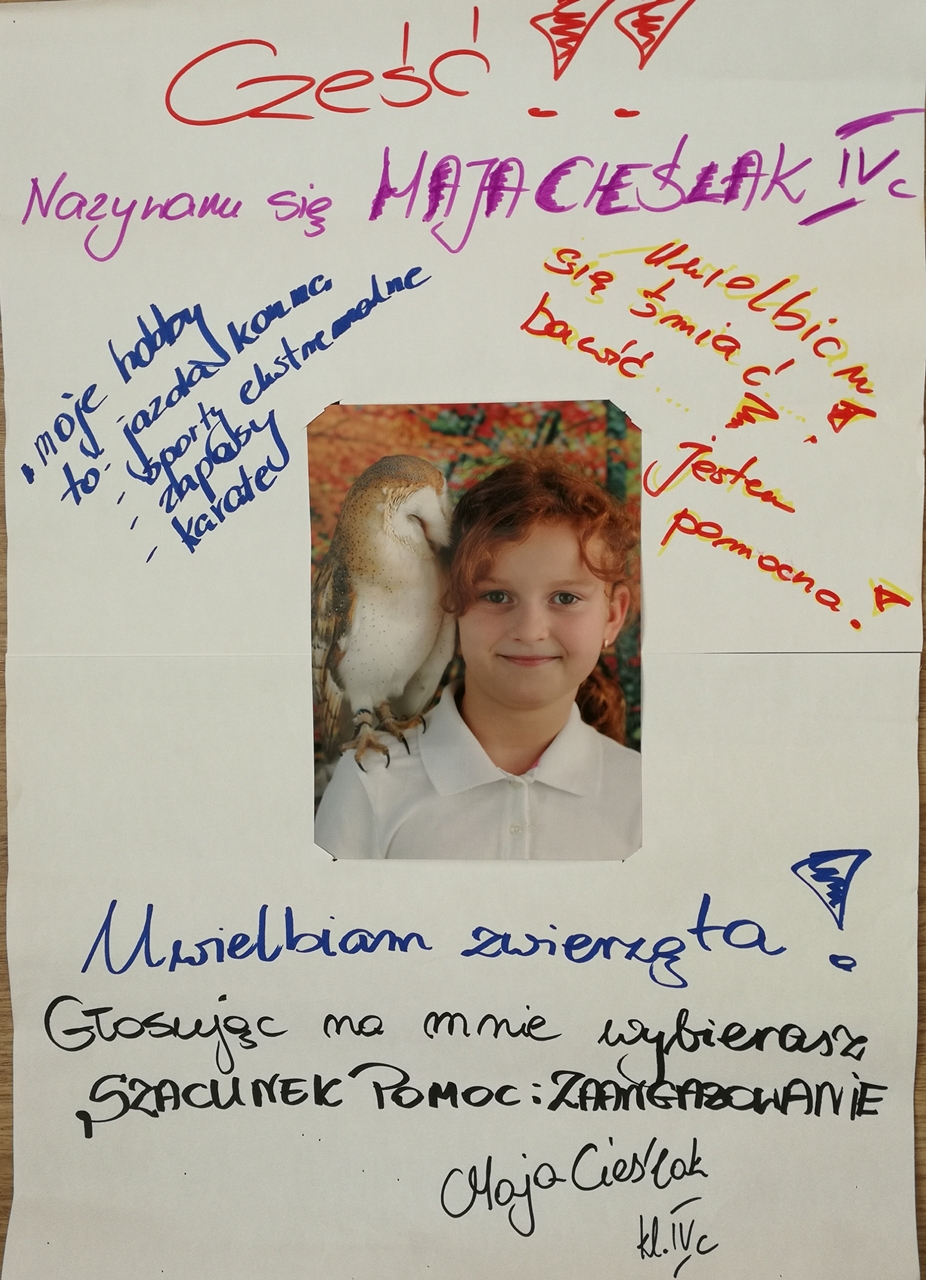 Cześć!!
Nazywam się MAJA CIEŚLAK IVc
moje hobby
to: - jazda konna
- sporty ekstremalne
- zapasy
- karate
Uwielbiam
się śmiać i
bawić....!
jestem
pomocna!
Uwielbiam zwierzęta!
Głosując na mnie wybierasz
SZACUNEK POMOC i ZAANGAZOWANIE
Maja Cieślak
kl. IVc